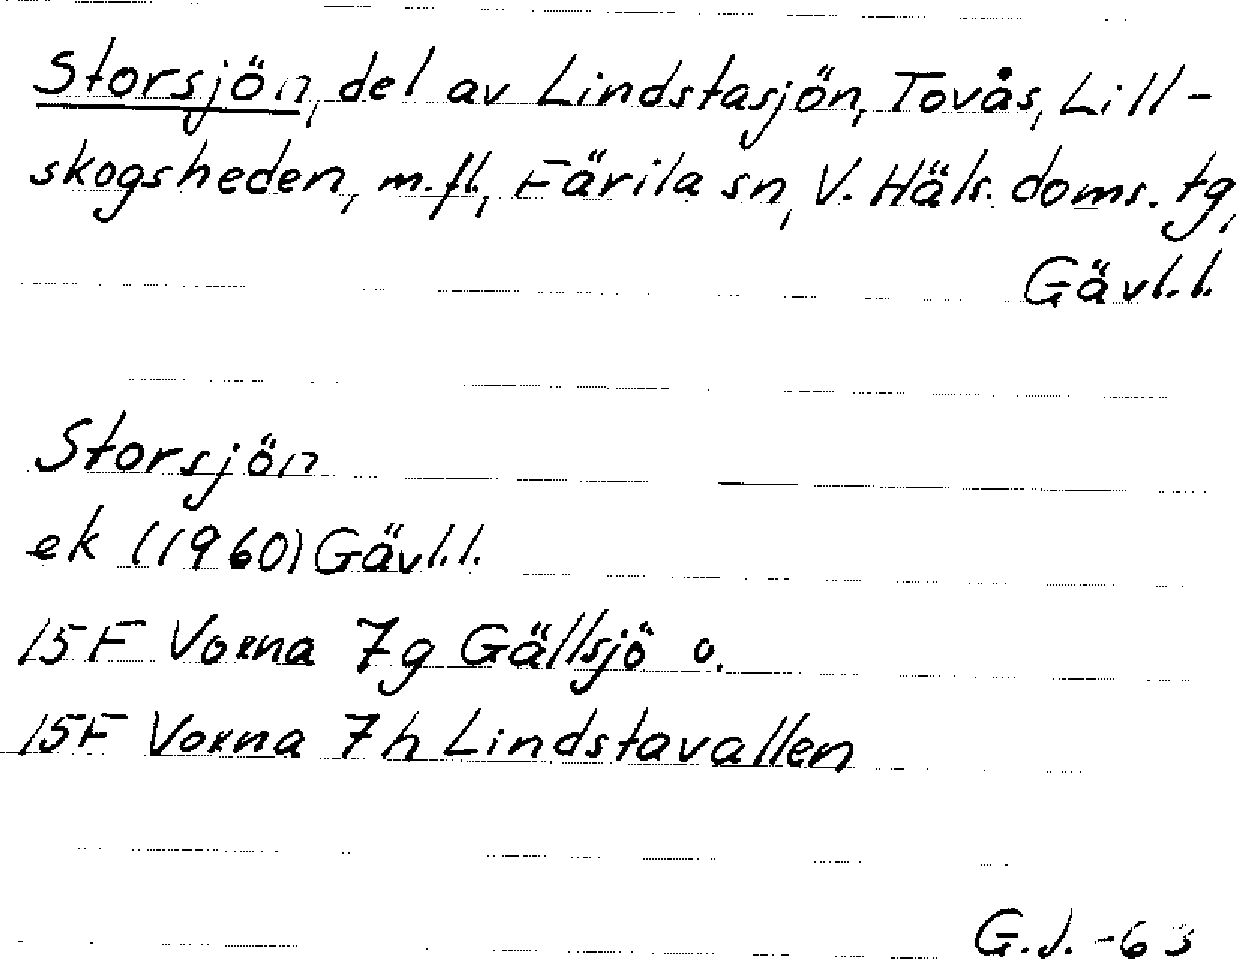 Storsjön, del av Lindstasjön, Tovås, Lill-
skogsheden, m.fl., Färila sn, V. Häls. doms. tg,
Gävl.l.
Storsjön
ek (1960) Gävl.l.
15F Voxna 7g Gällsjö o.
15F Voxna 7h Lindstavallen
G.J. -63